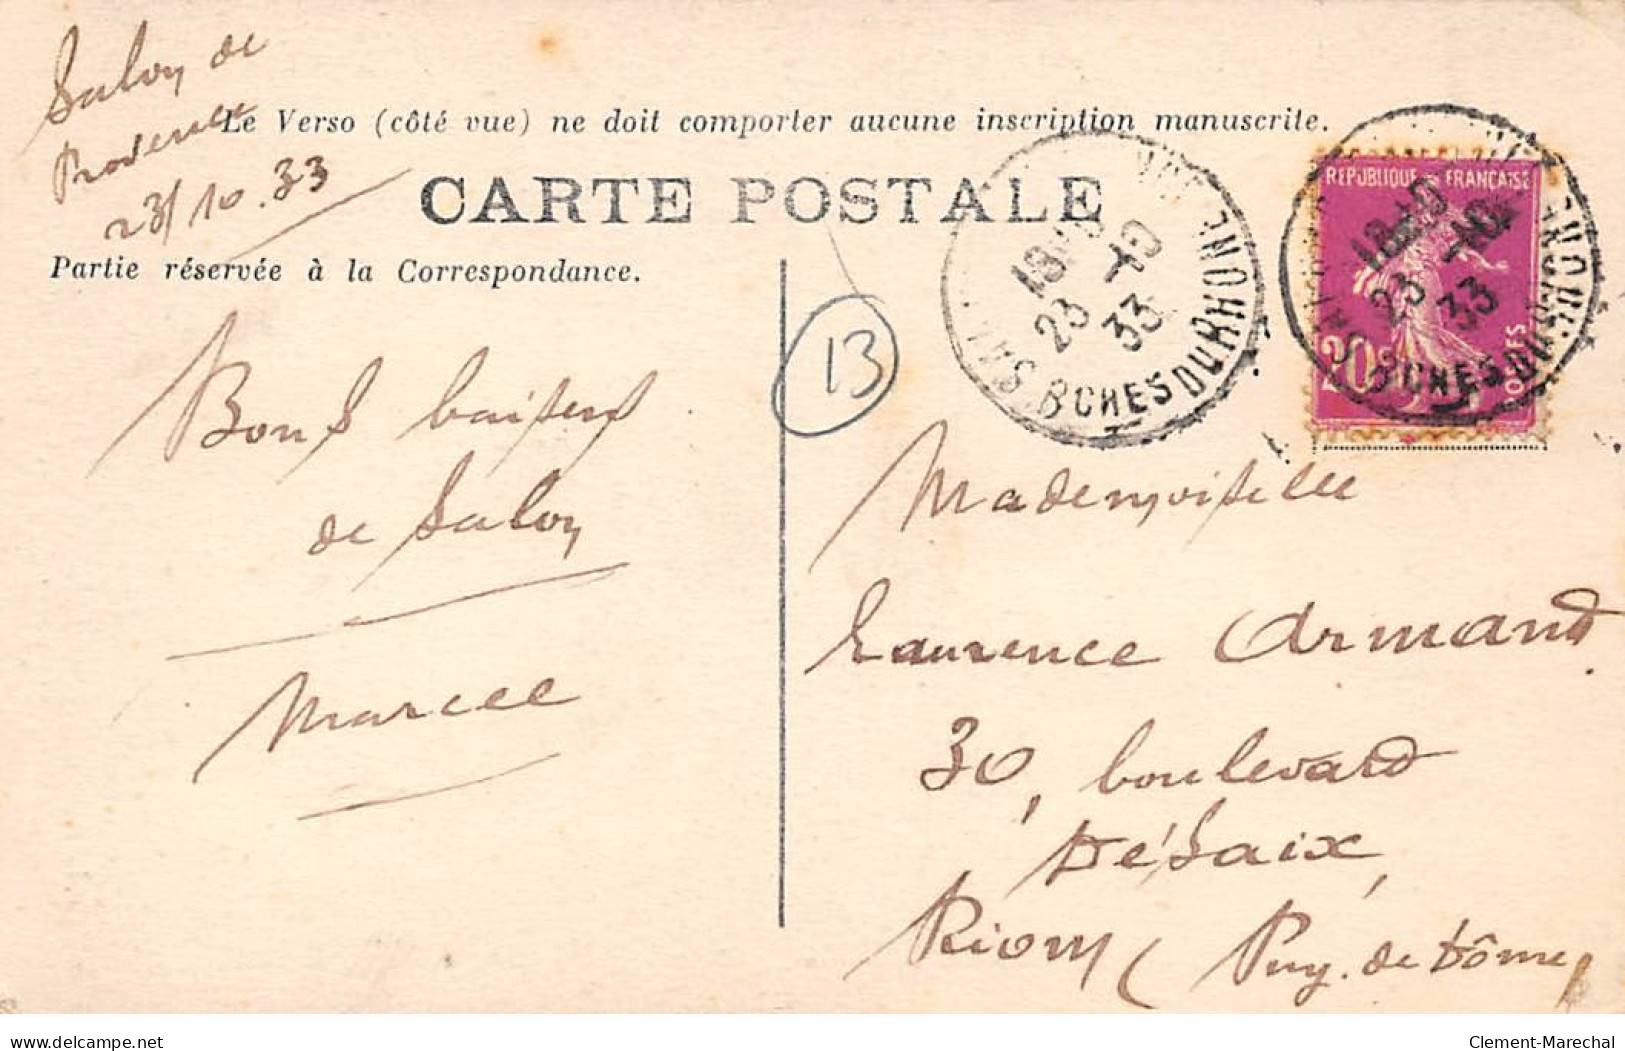 Salon de
Provence
23/10.33
Le Verso (côté vue) ne doit comporter aucune inscription manuscrite.
CARTE POSTALE
Partie réservée à la Correspondance.
13
18
23 -10
33
BCHES DU RHONE
REPUBLIQUE FRANÇAISE
18
23 -10
33
BCHES DU RHONE
20c
POSTES
Bons baisers
de Salon
Marcel
Mademoiselle
Laurence Armand
30, boulevard
Désaix,
Riom (Puy. de Dôme)
www.delcampe.net
Clement-Marechal